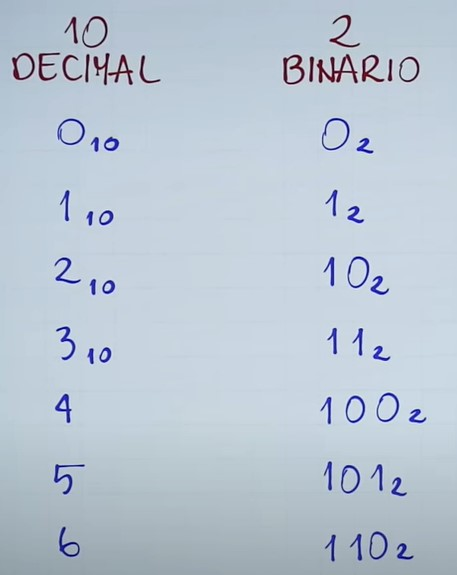 10 2
DECIMAL BINARIO
0₁₀ 0₂
1₁₀ 1₂
2₁₀ 10₂
3₁₀ 11₂
4 100₂
5 101₂
6 110₂